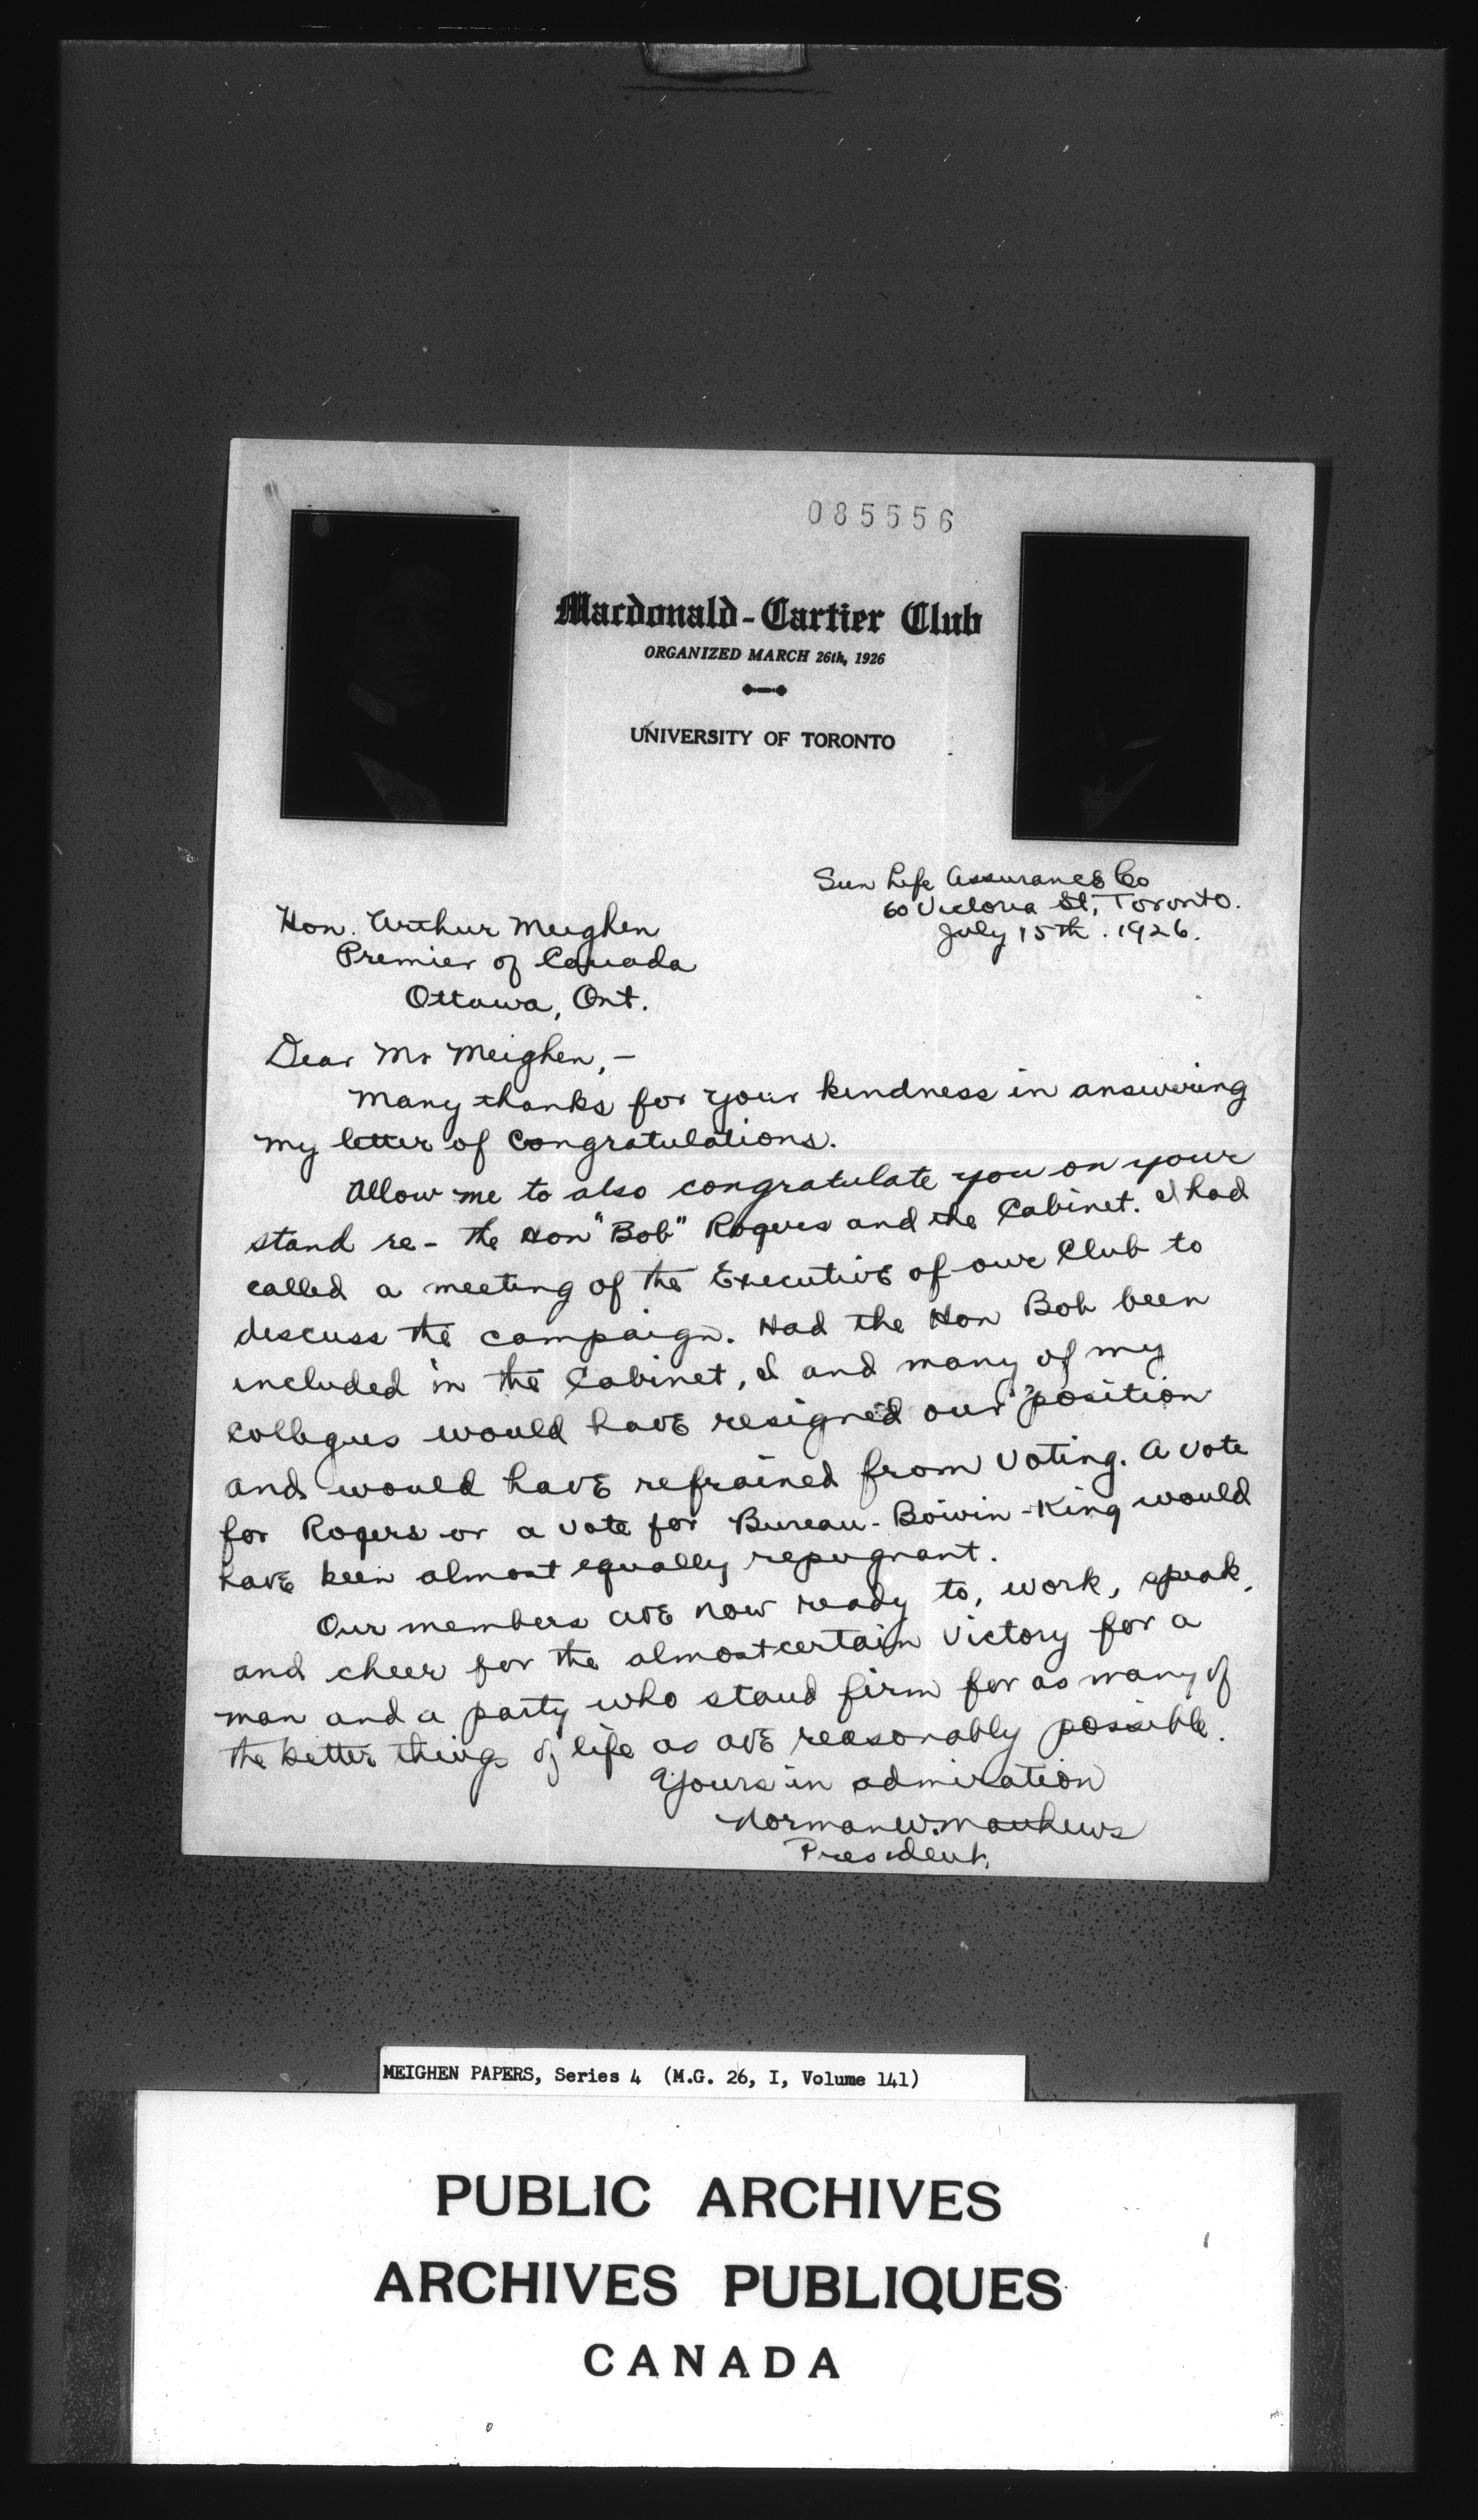 085556
Macdonald-Cartier Club
ORGANIZED MARCH 26th, 1926
UNIVERSITY OF TORONTO
Sun Life Assurance Co
60 Victoria St, Toronto.
July 15th. 1926.
Hon. Arthur Meighen
Premier of Canada
Ottawa, Ont.
Dear Mr Meighen,-
Many thanks for your kindness in answering
my letter of Congratulations.
Allow me to also congratulate you on your
stand re- the Hon "Bob" Rogers and the Cabinet. I had
called a meeting of the Executive of our Club to
discuss the campaign. Had the Hon Bob been
included in the Cabinet, I and many of my
collegues would have resigned our position
and would have refrained from voting. A vote
for Rogers or a vote for Bureau-Boivin-King would
have been almost equally repugnant.
Our members are now ready to, work, speak,
and cheer for the almost certain victory for a
man and a party who stand firm for as many of
the better things of life as are reasonably possible.
Yours in admiration
Norman W. Mathews
President.
MEIGHEN PAPERS, Series 4 (M.G. 26, I, Volume 141)
PUBLIC ARCHIVES
ARCHIVES PUBLIQUES
CANADA